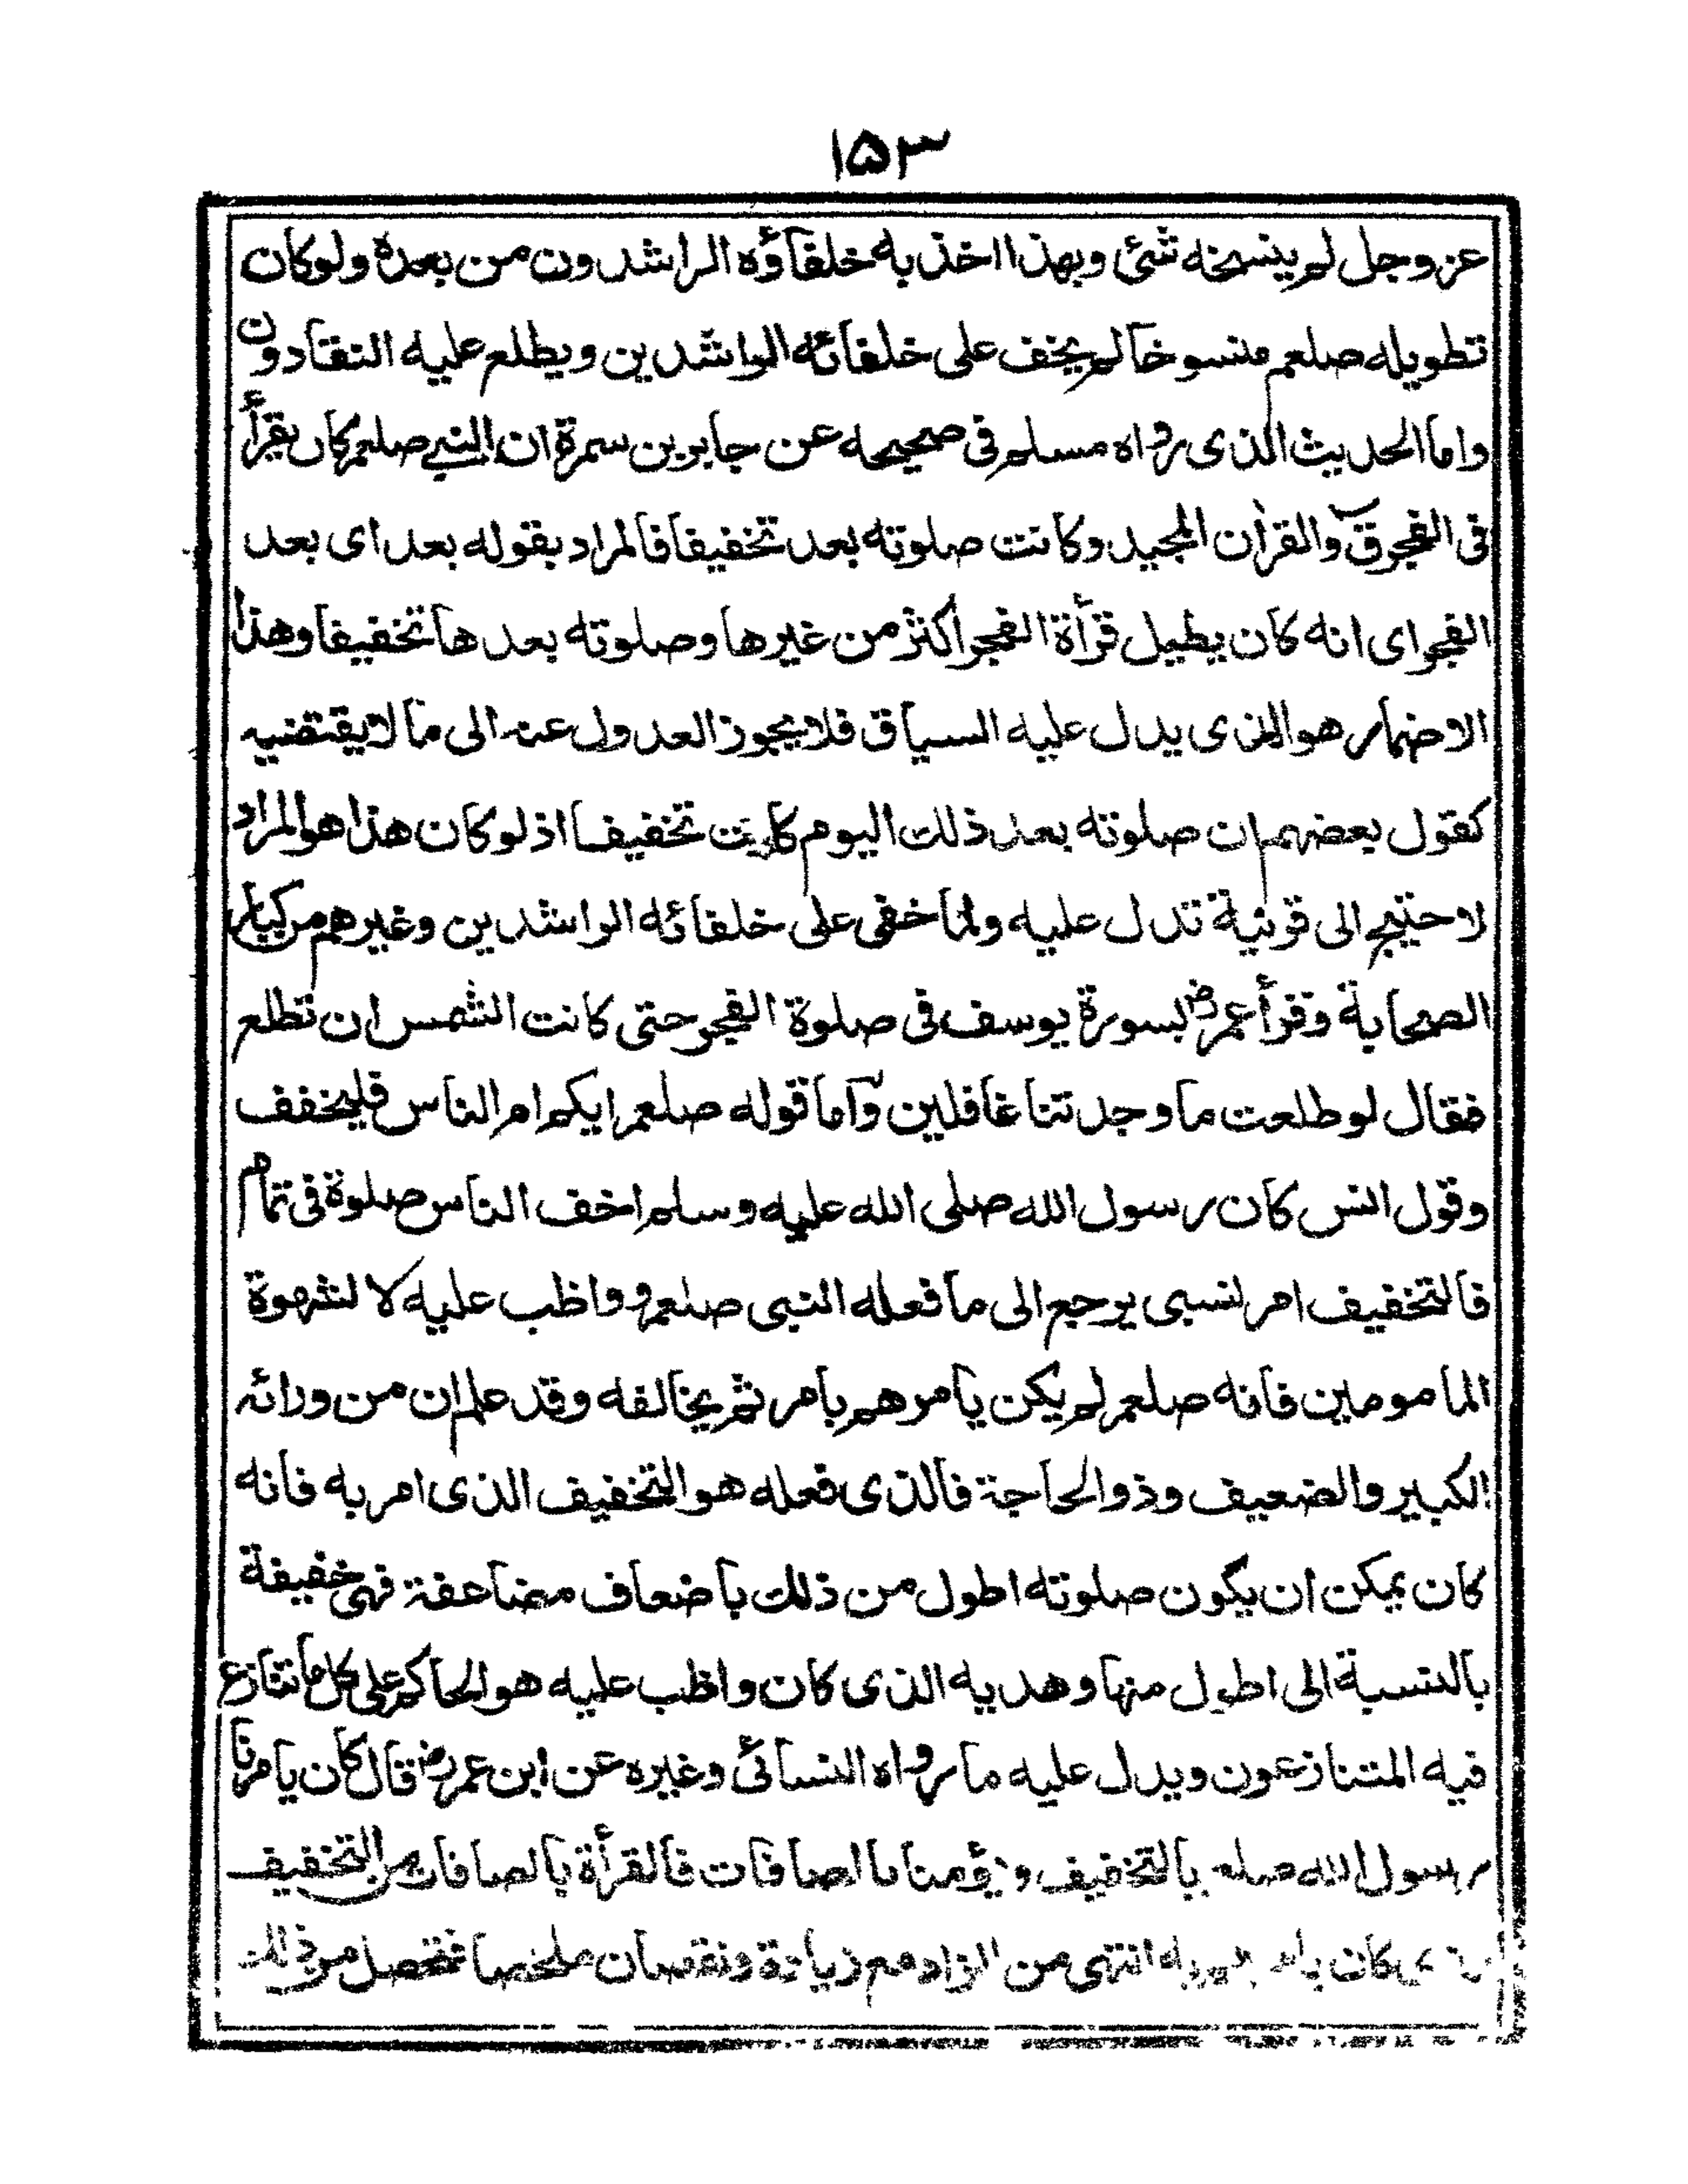 ١٥٣
عزوجل لم ينسخه شئ وبهذا اخذ به خلفاؤه الراشدون من بعده ولوكان
تطويله صلعم منسوخا لم يخف على خلفائه الراشدين ويطلع عليه النقادون
واما الحديث الذى رواه مسلم فى صحيحه عن جابر بن سمرة ان النبي صلعم كان يقرأ
فى الفجر ق والقرآن المجيد وكانت صلوته بعد تخفيفا فالمراد بقوله بعد اى بعد
الفجر اى انه كان يطيل قرأة الفجر اكثر من غيرها وصلوته بعدها تخفيفا وهذا
الاضمار هو الذى يدل عليه السياق فلا يجوز العدول عنه الى ما لا يقتضيه
كقول بعضهم ان صلوته بعد ذلك اليوم كانت تخفيفا اذ لو كان هذا هو المراد
لاحتيج الى قرنية تدل عليه ولما خفى على خلفائه الراشدين وغيرهم من كبار
الصحابة وقرأ عمر رض بسورة يوسف فى صلوة الفجر حتى كانت الشمس ان تطلع
فقال لو طلعت ما وجدتنا غافلين واما قوله صلعم ايكم ام الناس فليخفف
وقول انس كان رسول الله صلى الله عليه وسلم اخف الناس صلوة فى تمام
فالتخفيف امر نسبى يرجع الى ما فعله النبى صلعم وواظب عليه لا لشهوة
المامومين فانه صلعم لم يكن يامرهم بامر ثم يخالفه وقد علم ان من ورائه
الكبير والضعيف وذو الحاجة فالذى فعله هو التخفيف الذى امر به فانه
كان يمكن ان يكون صلوته اطول من ذلك باضعاف مضاعفة فهى خفيفة
بالنسبة الى اطول منها وهديه الذى كان واظب عليه هو الحاكم على كل ما تنازع
فيه المتنازعون ويدل عليه ما رواه النسائى وغيره عن ابن عمر رض قال كان يامرنا
رسول الله صلعم بالتخفيف ويؤمنا بالصافات فالقرأة بالصافات من التخفيف
كان به انتهى من الزاد مع زيادة ونقصان ملخصا فتحصل من ذلك